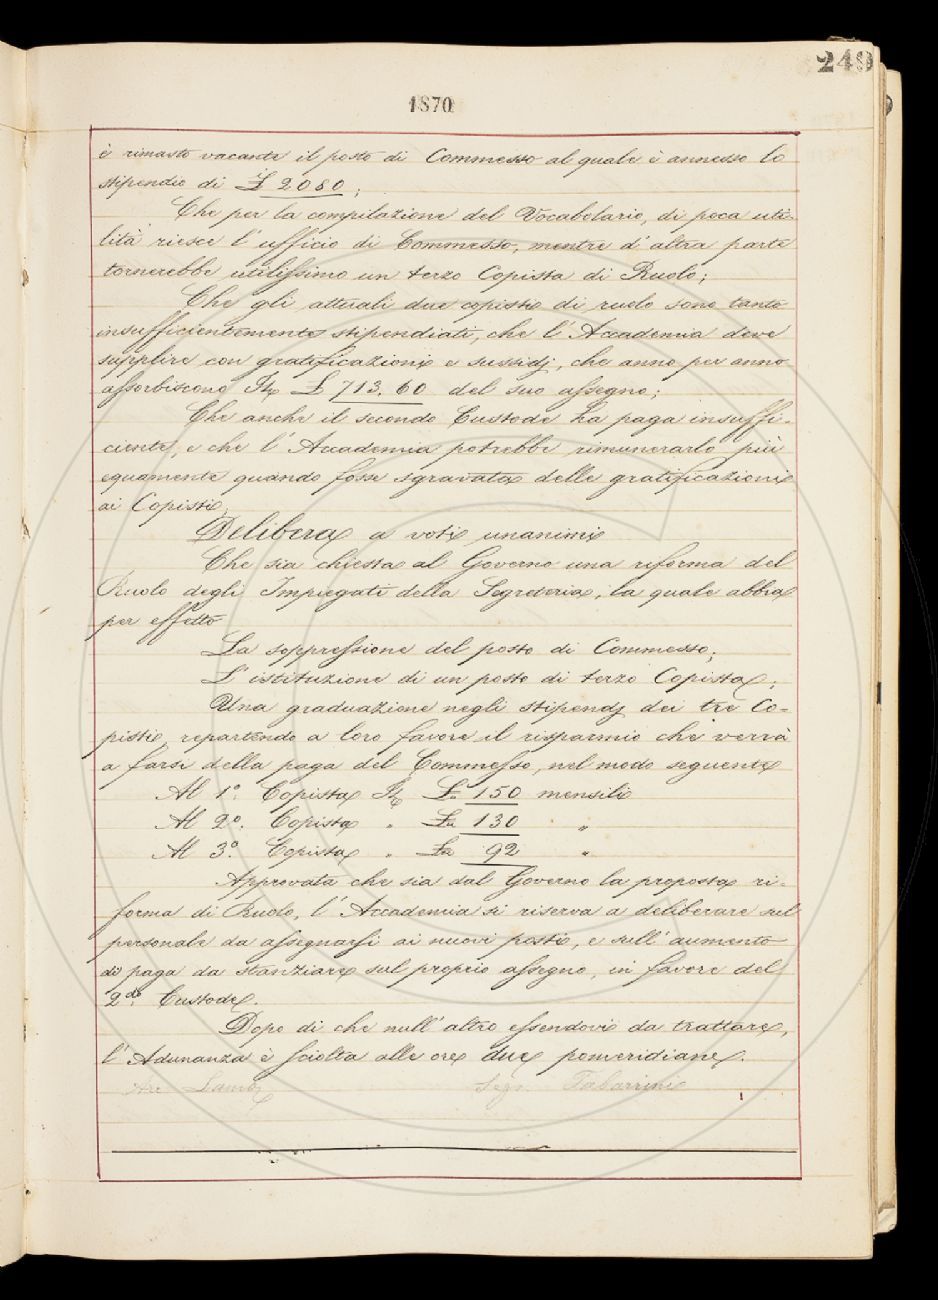 249
1870
è rimasto vacante il posto di Commesso al quale è annesso lo
stipendio di £ 2080;
Che per la compilazione del Vocabolario, di poca uti-
lità riesce l'ufficio di Commesso, mentre d'altra parte
tornerebbe utilissimo un terzo Copista di Ruolo;
Che gli attuali due copisti di ruolo sono tanto
insufficientemente stipendiati, che l'Accademia deve
supplire con gratificazioni e sussidj, che anno per anno
assorbiscono It £ 713.60 del suo assegno;
Che anche il secondo Custode ha paga insuffi-
ciente, e che l'Accademia potrebbe rimunerarlo più
equamente quando fosse sgravata delle gratificazioni
ai Copisti,
Delibera a voti unanimi
Che sia chiesta al Governo una riforma del
Ruolo degli Impiegati della Segreteria, la quale abbia
per effetto
La soppressione del posto di Commesso;
L'istituzione di un posto di terzo Copista;
Una graduazione negli stipendj dei tre Co-
pisti, repartendo a loro favore il risparmio che verrà
a farsi della paga del Commesso, nel modo seguente
Al 1°. Copista It £ 150 mensili
Al 2°. Copista " £ 130 "
Al 3°. Copista " £ 92 "
Approvata che sia dal Governo la proposta ri-
forma di Ruolo, l'Accademia si riserva a deliberare sul
personale da assegnarsi ai nuovi posti, e sull'aumento
di paga da stanziare sul proprio assegno, in favore del
2do. Custode.
Dopo di che null'altro essendovi da trattare,
l'Adunanza è sciolta alle ore due pomeridiane.
Segr. Tabarrini